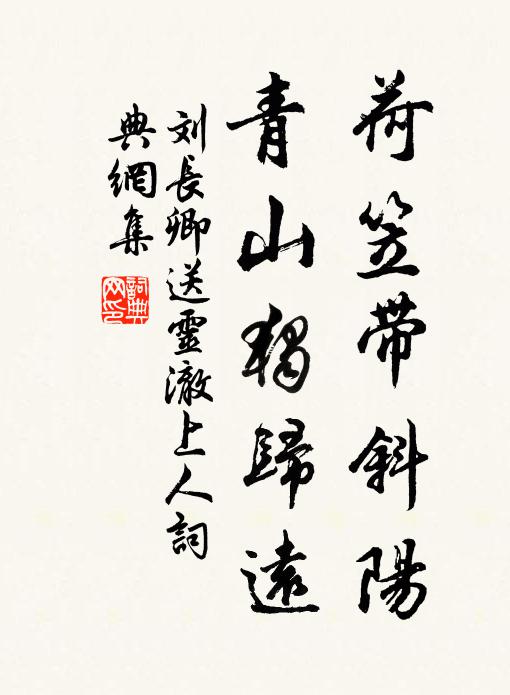 荷笠帶斜陽
青山獨歸遠
刘長卿送靈澈上人詞
典網集
詞典網印